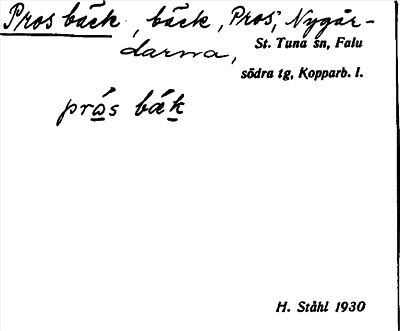 Pros bäck, bäck, Pros, Nygår-
darna,
St. Tuna sn, Falu
södra tg, Kopparb. l.
prås bäk
H. Ståhl 1930